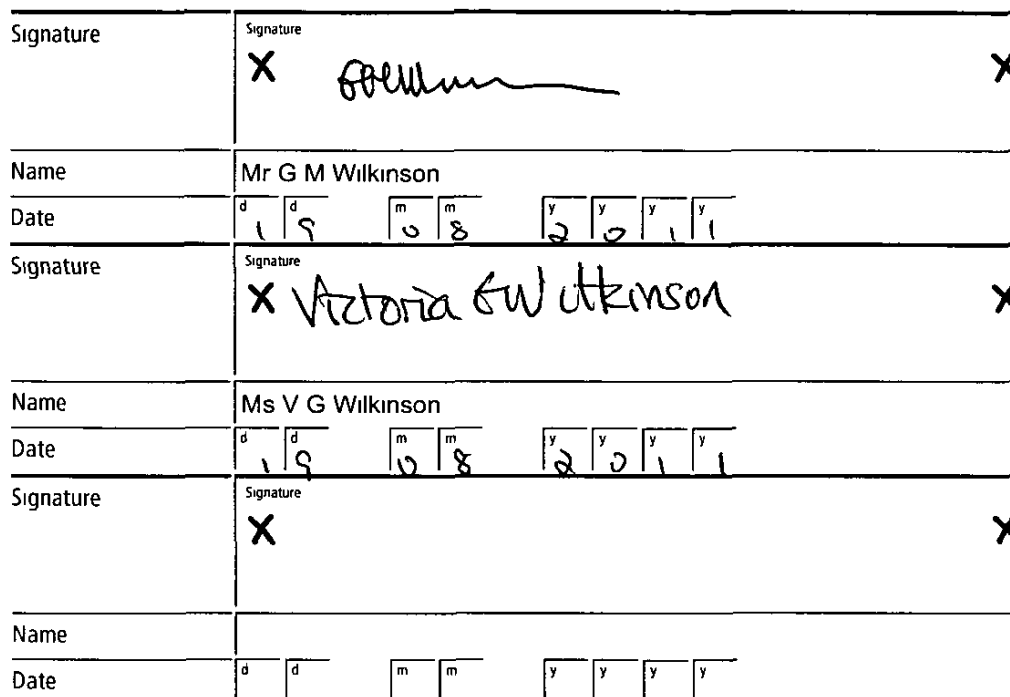 Signature Signature
X X
Name Mr G M Wilkinson
Date d 1 d 9 m 0 m 8 y 2 y 0 y 1 y 1
Signature Signature
X Victoria G Wilkinson X
Name Ms V G Wilkinson
Date d 1 d 9 m 0 m 8 y 2 y 0 y 1 y 1
Signature Signature
X X
Name
Date d d m m y y y y